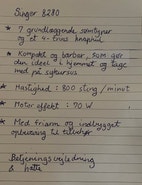 Singer 8280
* 7 grundlæggende sømtyper
og et 4-trins knaphul
* Kompakt og bærbar, som gør
den ideel i hjemmet og tage
med på sykursus
* Hastighed : 800 sting / minut
* Motor effekt : 70 W
* Med friarm og indbygget
opbevaring til tilbehør
Betjeningsvejledning
& hætte